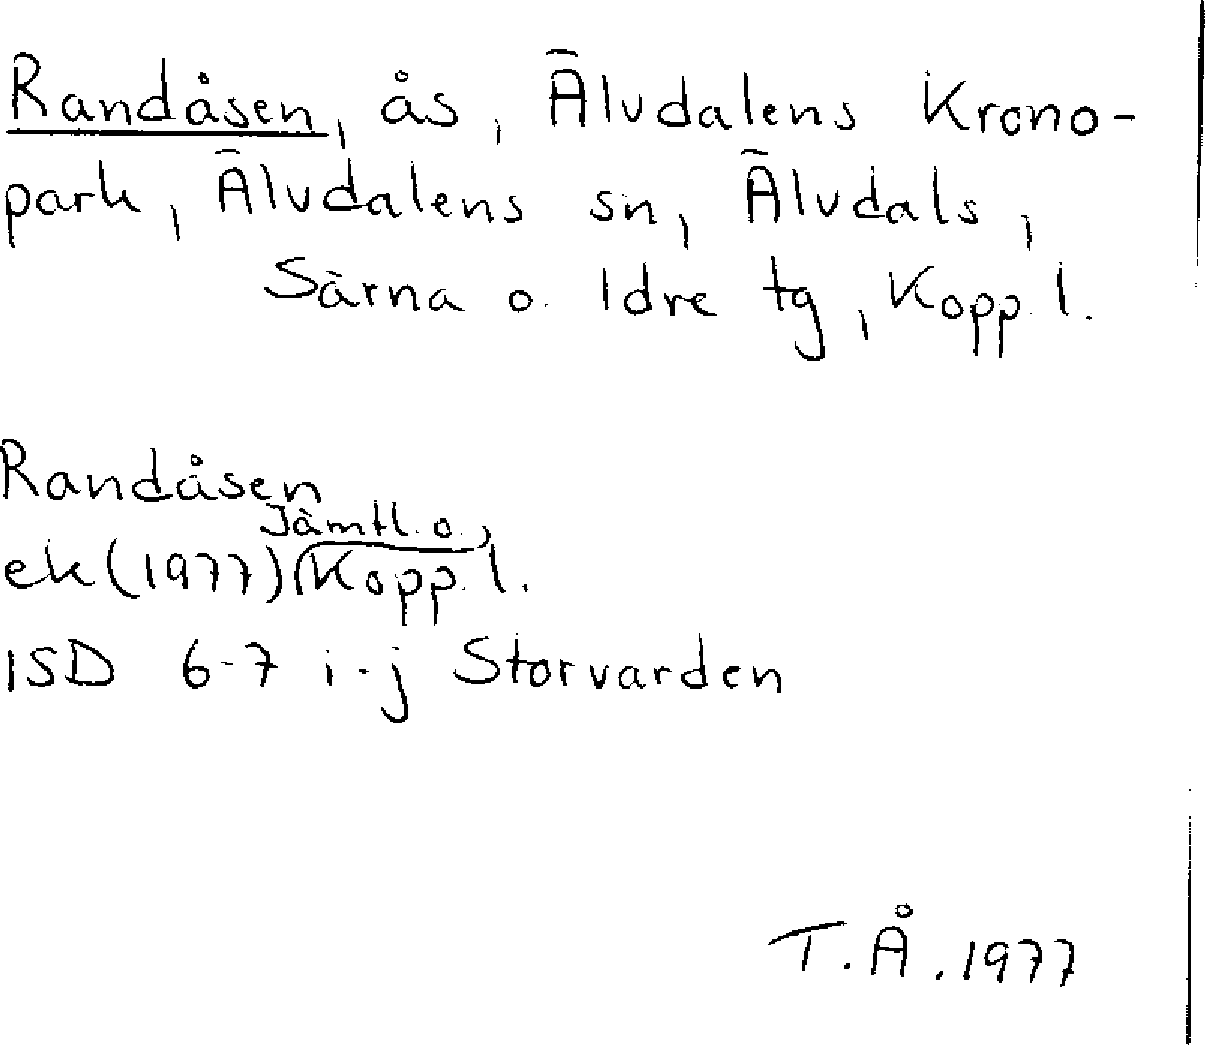 Randåsen, ås, Älvdalens Krono-
park, Älvdalens sn, Älvdals,
Särna o. Idre tg, Kopp. l.
Randåsen
Jämtl. o.
ek (1977) Kopp. l.
15D 6-7 i-j Storvarden
T.Å. 1977